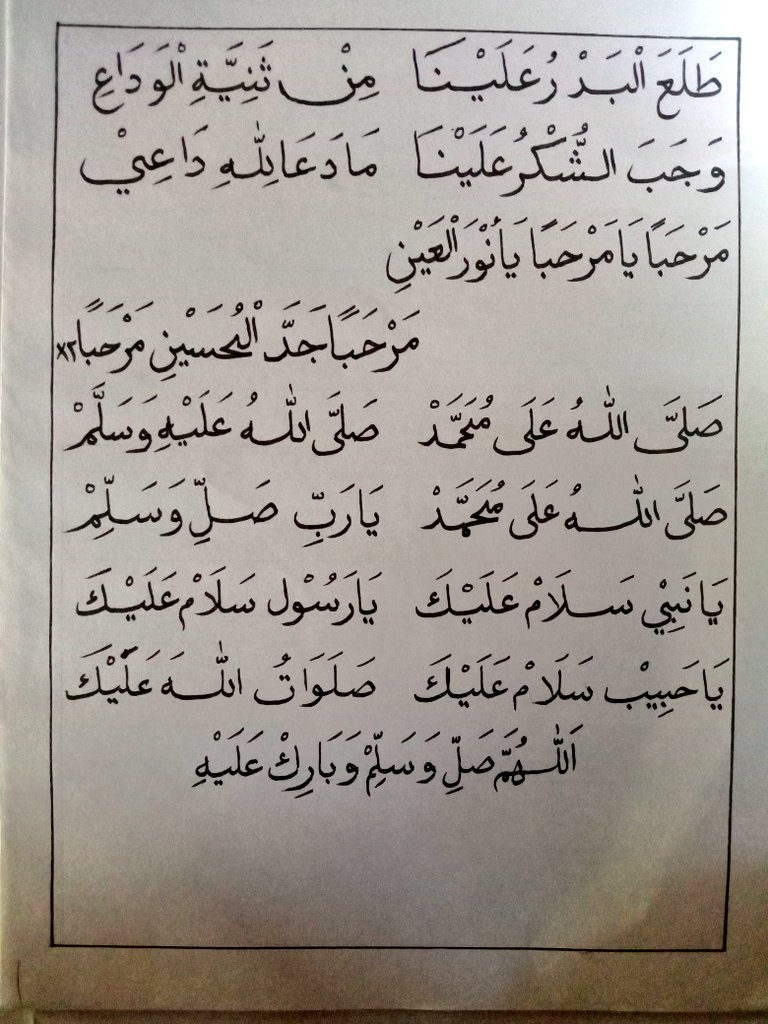 طَلَعَ الْبَدْرُ عَلَيْنَا مِنْ ثَنِيَّةِ الْوَدَاعِ
وَجَبَ الشُّكْرُ عَلَيْنَا مَا دَعَا لِلّٰهِ دَاعِيْ
مَرْحَبًا يَا مَرْحَبًا يَا نُوْرَ الْعَيْنِ
مَرْحَبًا جَدَّ الْحُسَيْنِ مَرْحَبًا ×٢
صَلَّى اللّٰهُ عَلَى مُحَمَّدْ صَلَّى اللّٰهُ عَلَيْهِ وَسَلَّمْ
صَلَّى اللّٰهُ عَلَى مُحَمَّدْ يَا رَبِّ صَلِّ وَسَلِّمْ
يَا نَبِيْ سَلَامْ عَلَيْكَ يَا رَسُوْل سَلَامْ عَلَيْكَ
يَا حَبِيْب سَلَامْ عَلَيْكَ صَلَوَاتُ اللّٰهَ عَلَيْكَ
اَللّٰهُمَّ صَلِّ وَسَلِّمْ وَبَارِكْ عَلَيْهِ